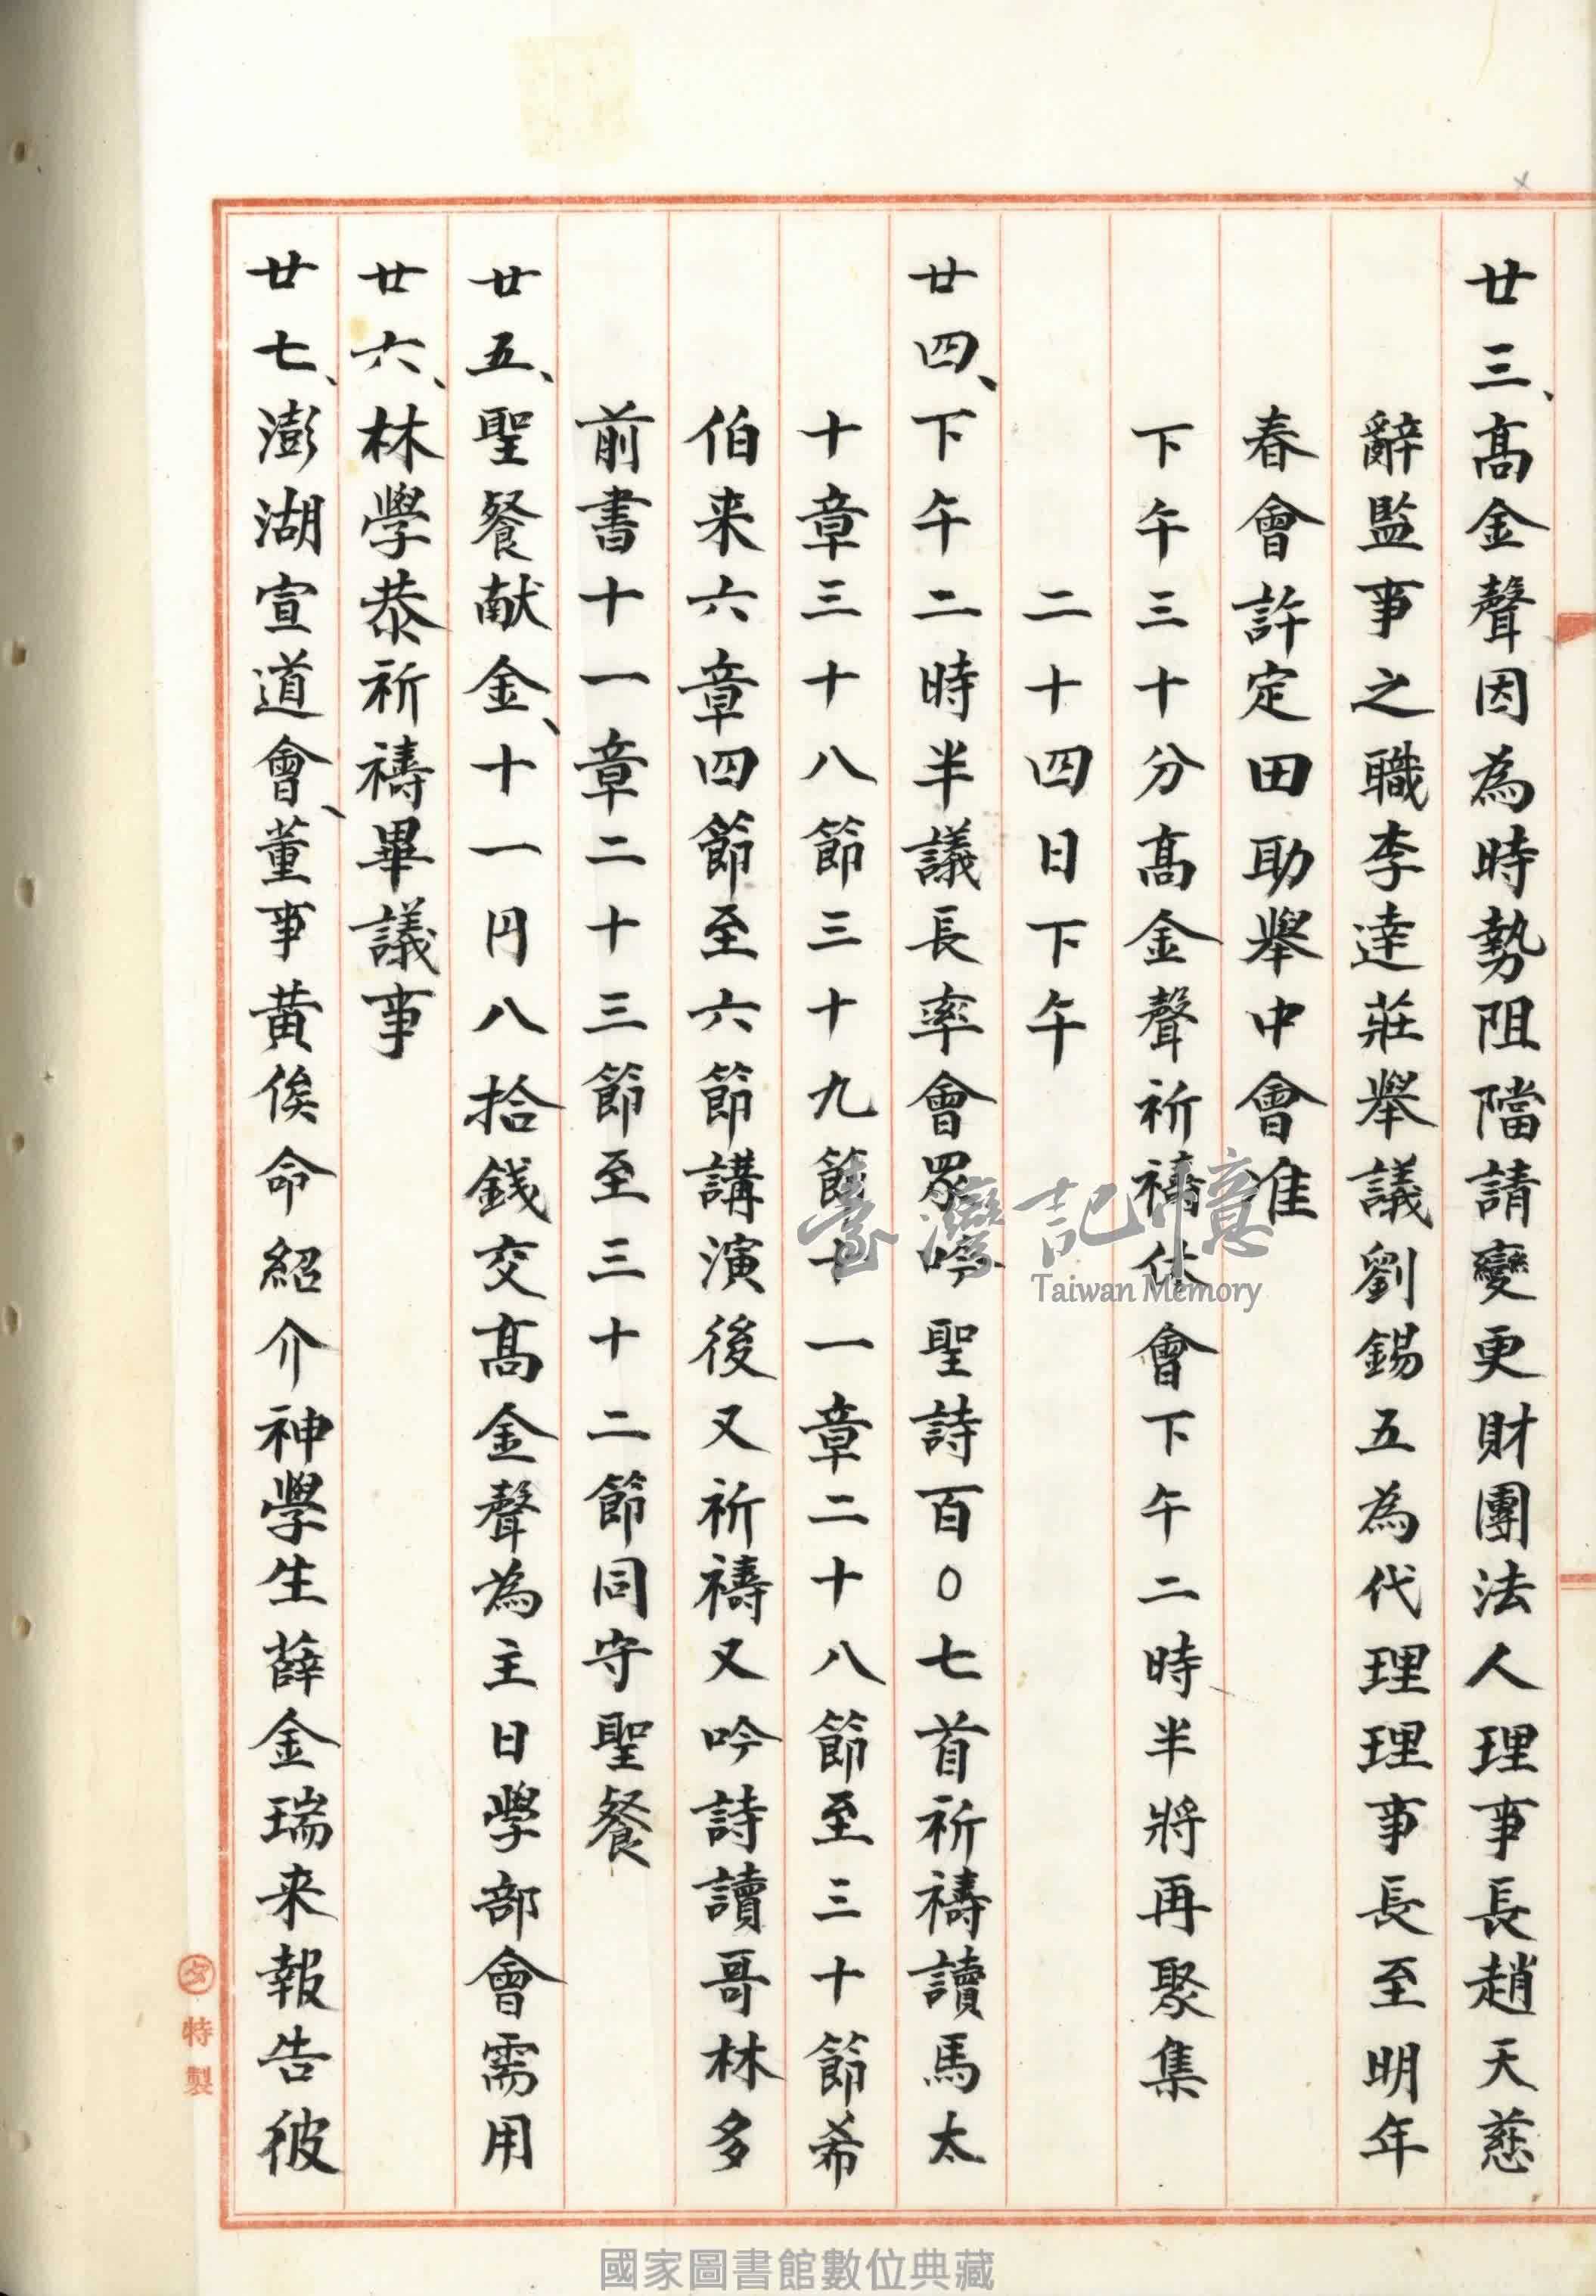 廿三、高金聲因為時勢阻擋請變更財團法人理事長趙天慈
辭監事之職李達莊舉議劉錫五為代理理事長至明年
春會許定田助舉中會准
下午三十分高金聲祈禱休會下午二時半將再聚集
二十四日下午
廿四、下午二時半議長率會眾吟聖詩百〇七首祈禱讀馬太
十章三十八節三十九節十一章二十八節至三十節希
伯来六章四節至六節講演後又祈禱又吟詩讀哥林多
前書十一章二十三節至三十二節同守聖餐
廿五、聖餐献金、十一円八拾錢交高金聲為主日學部會需用
廿六、林學恭祈禱畢議事
廿七、澎湖宣道會、董事黄俟命紹介神學生薛金瑞来報告彼
特製
臺灣記憶
Taiwan Memory
國家圖書館數位典藏